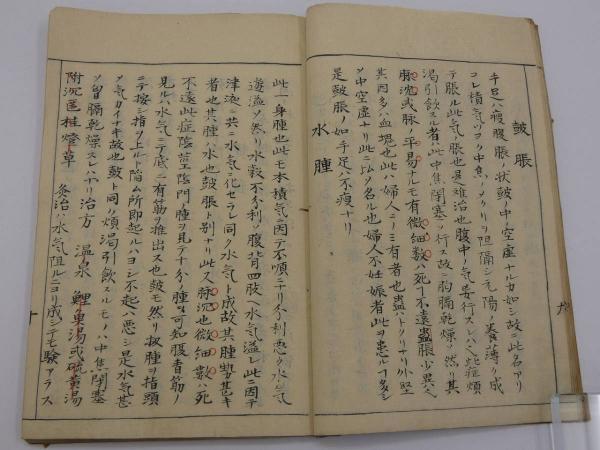 鼓脹
手足ハ瘦腹脹ノ状鼓ノ中空虚ナルカ如シ故ニ此名アリ
コレ積気ツヨク中焦ノメクリヲ阻隔シ元陽ノ養薄ク成
テ脹ル此気脹也是難治也腹中ノ気妄行スレハ必煩
渇引飲スル者ハ此中焦閉塞ノ行ス故ニ胸膈乾燥ノ然リ其
脈沈或脉ノ平易ナルモ有微細数ハ死ニ不遠蟲脹少異ヘ
其因多ハ血塊也此ハ婦人ニノミ有者也蟲ハトクリナリ外堅
ソ中空虚ナリ此ニ以ソ名ル也婦人不妊娠者此ヲ患ルコ多シ
是鼓脹ノ如手足ハ不瘦ナリ
水腫
此一身腫也此モ本積気ニ因テ不順ニナリ分利悪ク水気
邉溢ソ然リ水穀不分利ソ腹背四肢ヘ水気溢レ此ニ因テ
津液ハ共ニ水気ニ化セラレ同ク水気ト成故其腫勢甚キ
者也其腫ハ水也鼓脹ト別ナリ此又脉沉也微細数ハ死
不遠此症陰茎陰門腫ヲ見テ十分ノ腫ヲ可知腹青筋ノ
見ルハ水気ニテ底ニ有筋ヲ推出ス也鼓モ然リ扨腫ヲ指頭
ニテ按シ指ヲ上ルト陥ム所即起ルハヨシ不起ハ悪シ是水気甚
ソ気カイナキ故也鼓ト同ク煩渇引飲スルモノハ中焦閉塞
ソ胃膈乾燥スレハナリ治方 温泉 鯉ノ臭湯或硫黄湯
附沉匿桂燈草 灸治ハ水気阻ルニヨリ成シテモ験アラス
九
十